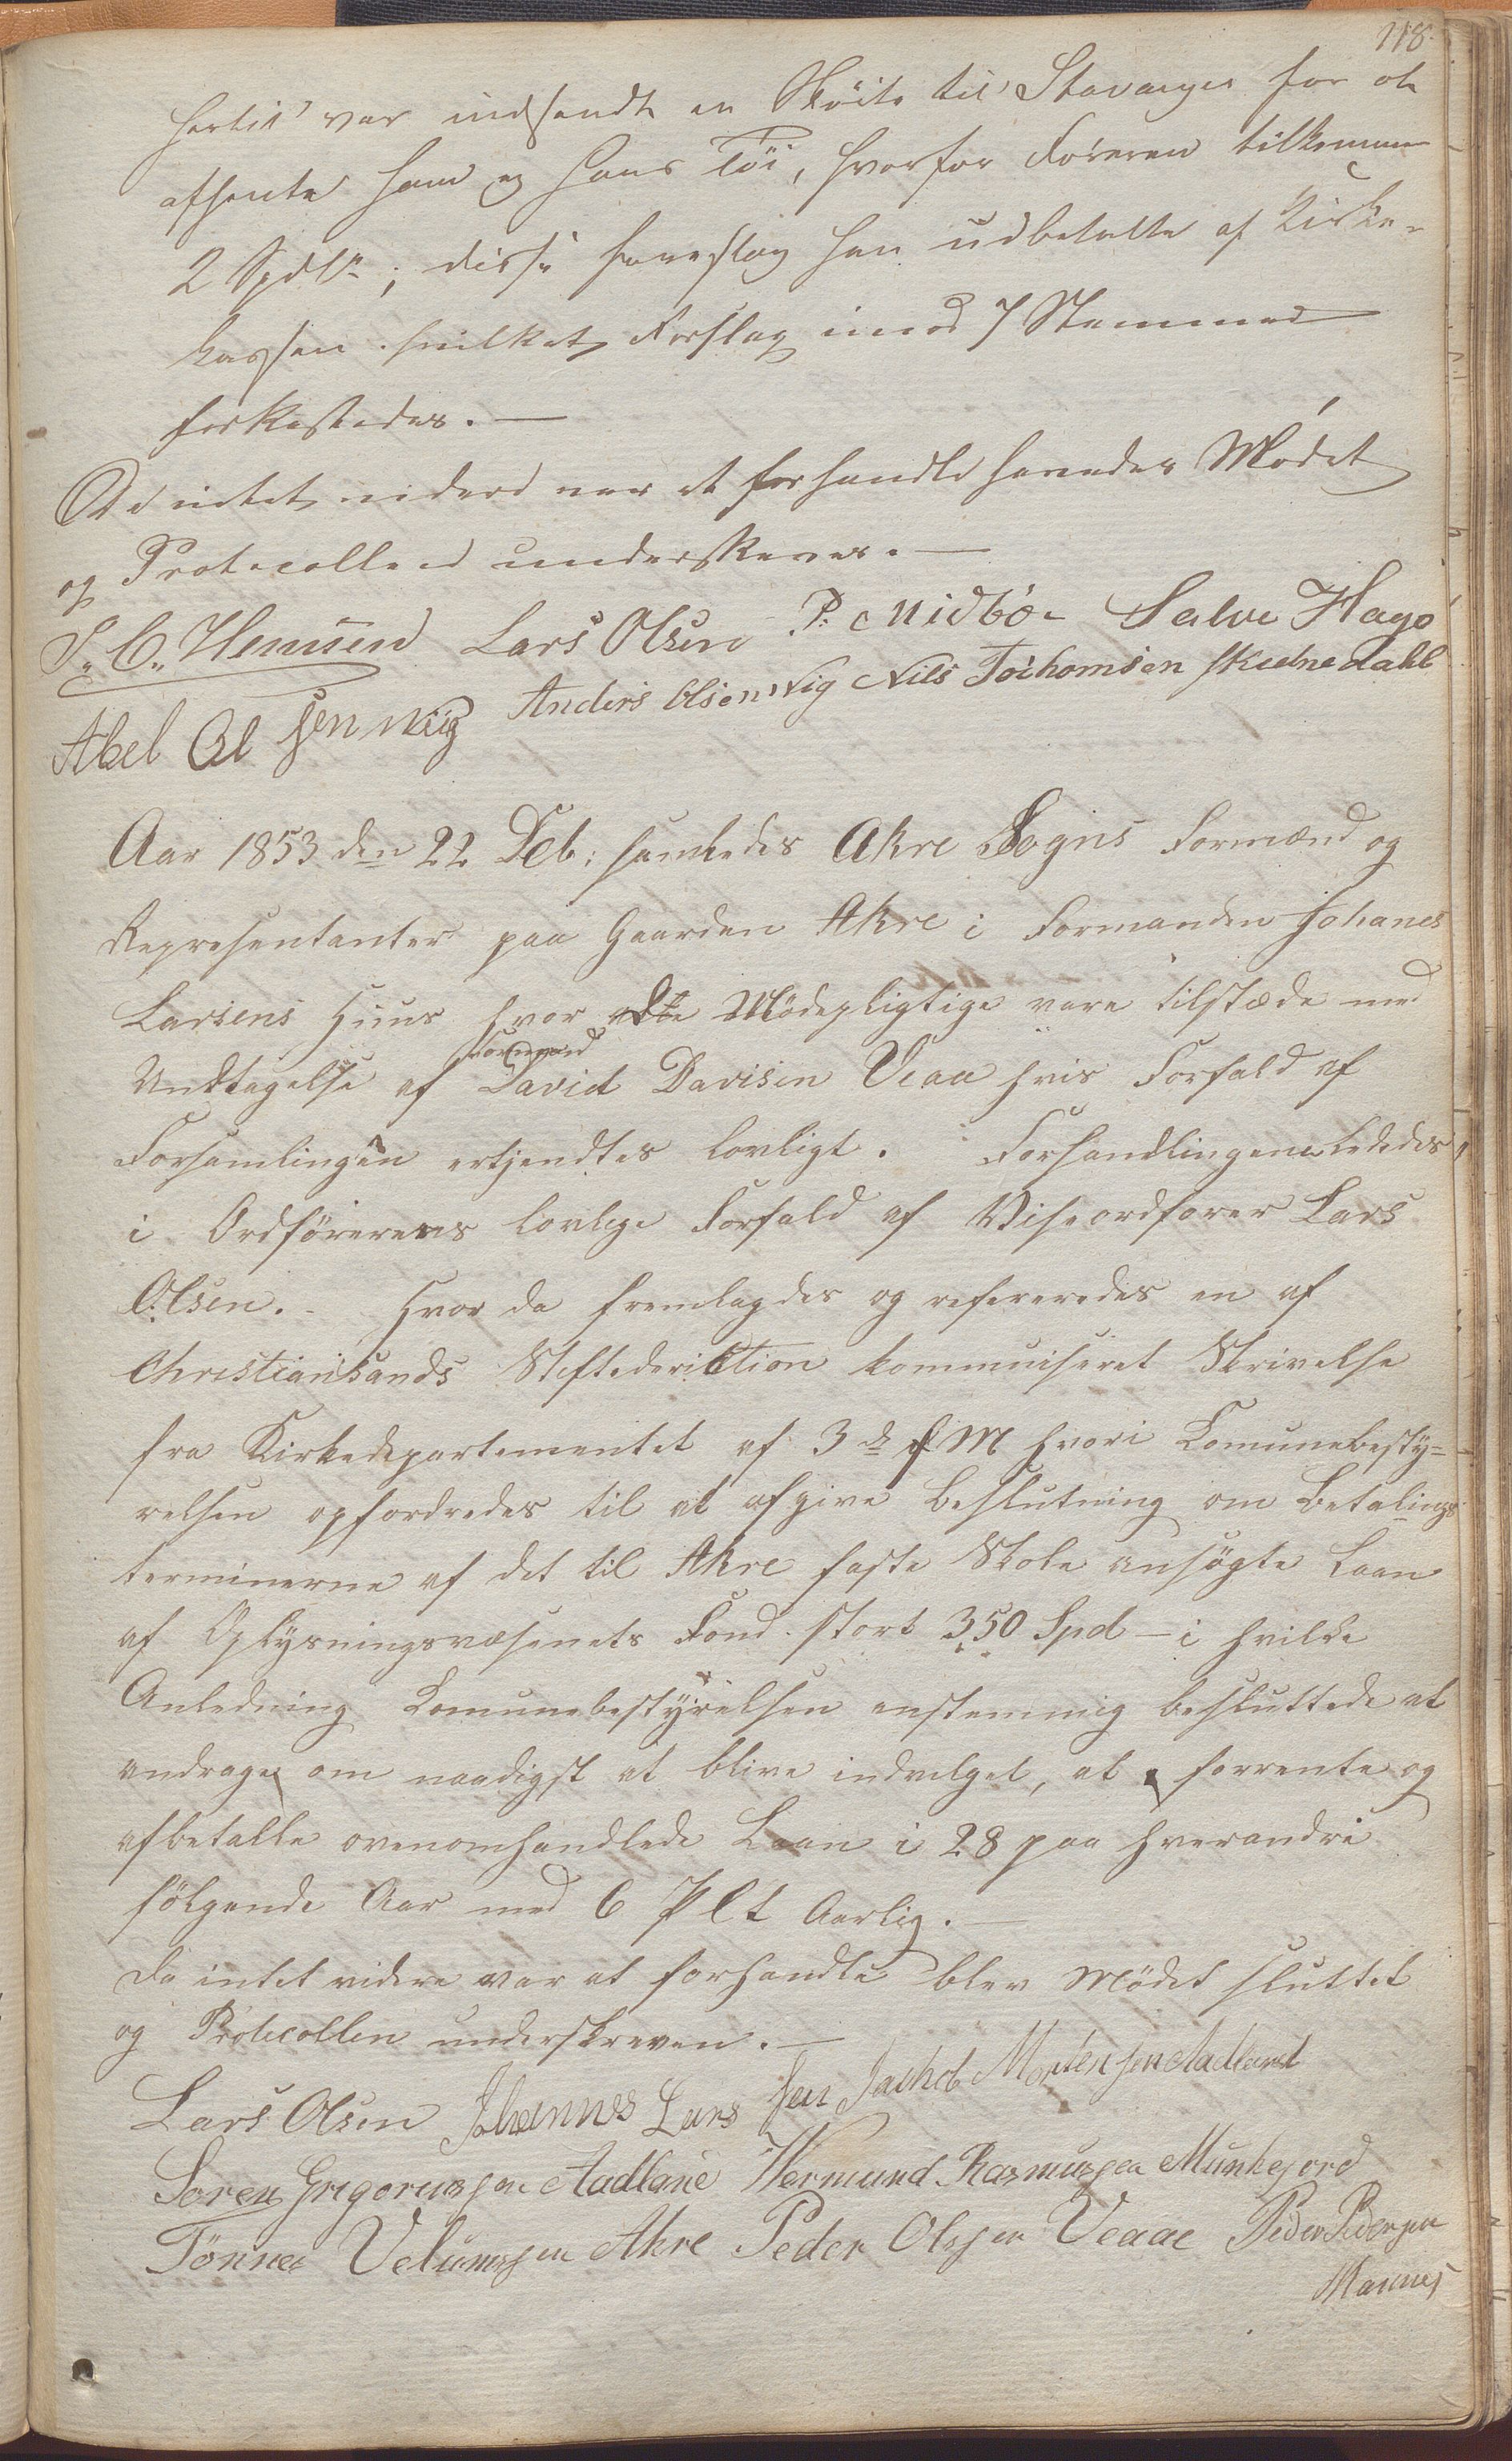 118.
hertil var indsendt en Skøite til Stavanger for at
afhente ham og hans Tøi, hvorfor Føreren tilkommer
2 Spdlr; disse foreslog han udbetalte af Kirke-
kassen hvilket Forslag imod 7 Stemmer
forkastedes. —
Da intet videre var at forhandle hævedes Mødet
og Protocollen underskreves. —
S. C. Hemsen Lars Olsen P. Midbö- Salve Hage
Abel Ol sen wiig Anders Olsen Vig Nils Toihomsen Skudnedahl
Aar 1853 den 22 Feb: samledes Akre Sogns Formænd og
Representanter paa Gaarden Akre i Formanden Johanes
Larsens Huus hvor de Mödepligtige vare tilstæde med
Formand
Undtagelse af David Davisen Veaa hvis Forfald af
Forsamlingen erkjendtes lovligt. Forhandlingene lededes
i Ordförerens lovlige Forfald af Viseordforer Lars
Olsen. - Hvor da fremlagdes og refereredes en af
Christiansands Stiftederiktion kommuiseret Skrivelse
fra Kirkedepartementet af 3 d: f M hvori Comunebesty=
relsen opfordredes til at afgive Beslutning om Betalings
terminerne af det til Akre faste Skole ansögte Laan
af Oplysningsvæsenets Fond stort 350 Spd - i hvilke
Anledning Comunebestyrelsen enstemmig besluttede at
andrage om naadigst at blive indvilget, at forrente og
afbetalle ovenomhandlede Laan i 28 paa hverandre
fölgende Aar med 6 Plt Aarlig. —
Da intet videre var at forhandle blev Mödet sluttet
og Protecollen underskreven. —
Lars Olsen Johannes Lars sen Jachob Mortensen Aadland
Soren Grigoriussen Aadland Wermund Rasmussen Munkejord
Tönnes Velumssen Akre Peder Olssen Veaae Peder Pedersen
Mannes